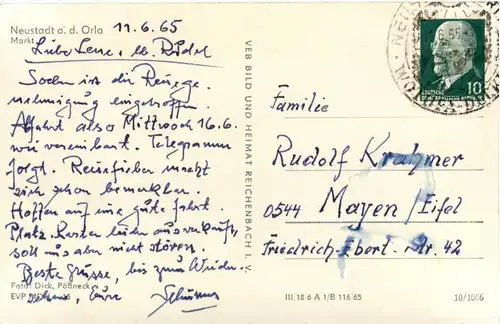 Neustadt a. d. Orla
Markt
11.6.65
Liebe Lene, lb. Rudel
Soeben ist die Reisege-
nehmigung eingetroffen.
Abfahrt also Mittwoch 16.6.
wie vereinbart. Telegramm
folgt. Reisefieber macht
sich schon bemerkbar.
Hoffen auf eine gute Fahrt.
Platz-Karten leider ausverkauft,
soll uns aber nicht stören.
Beste Grüsse, bis zum Wieder-
sehn, Eure
Foto: Dick, Pößneck
EVP
VEB BILD UND HEIMAT REICHENBACH I. V.
6.65
DEUTSCHE
DEMOKRATISCHE REPUBLIK
10
Familie
Rudolf Krahmer
0544 Mayen/Eifel
Friedrich-Ebert-Str. 42
III 18 6 A 1/B 116/65
10/1006